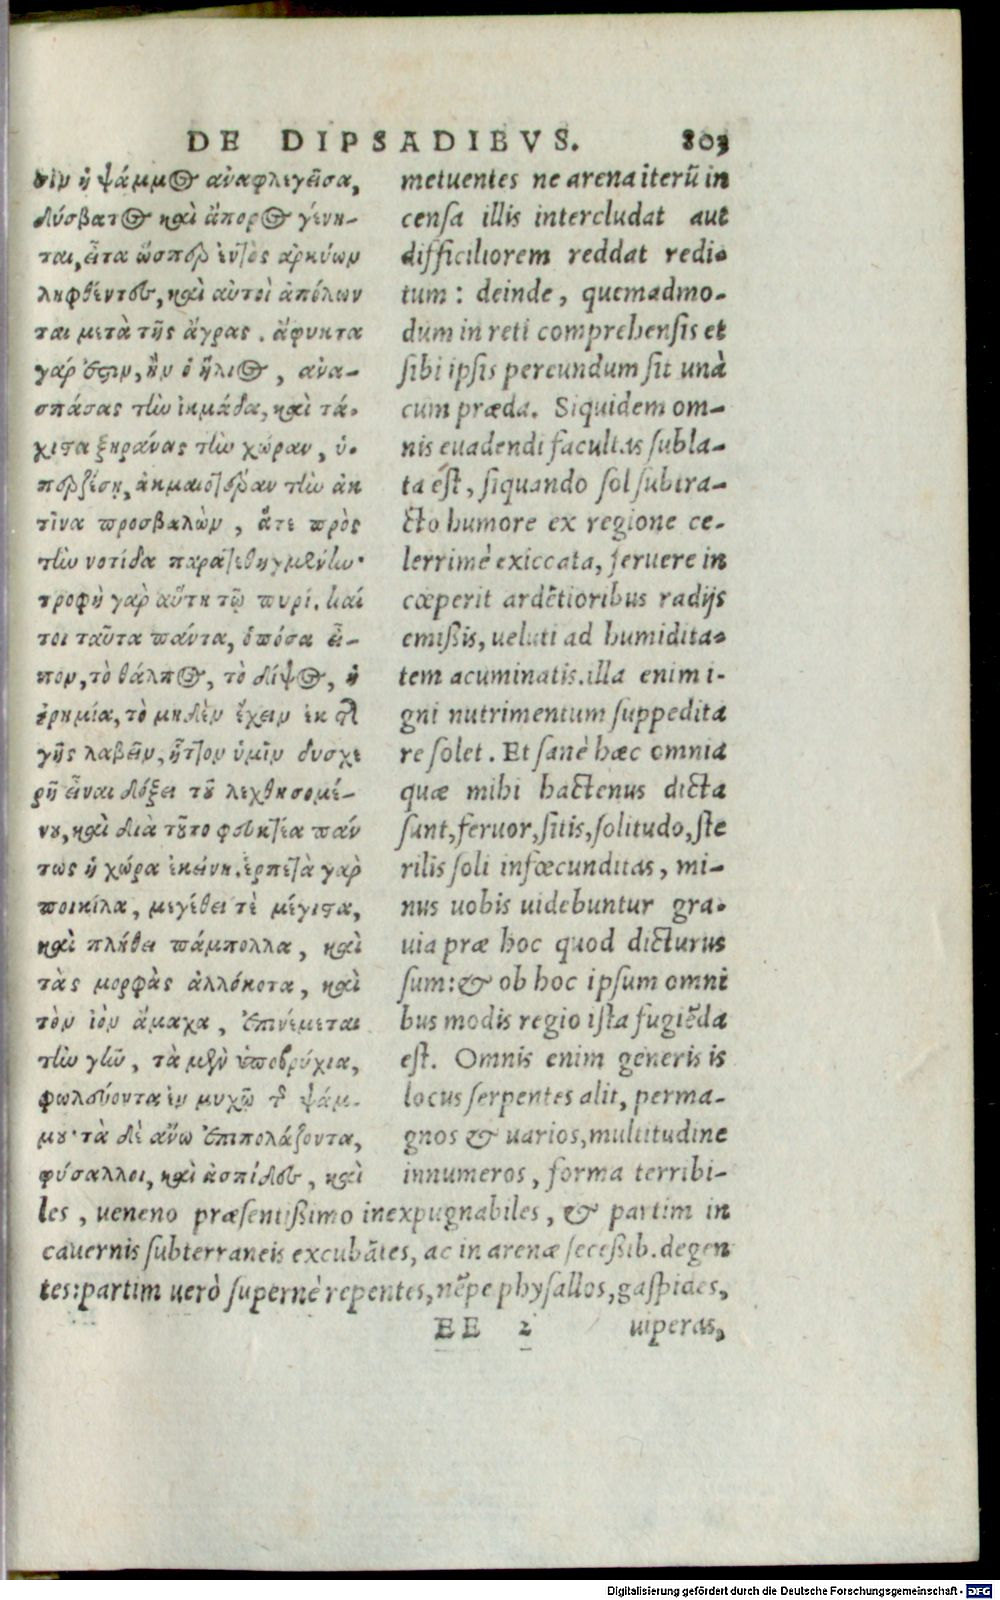 DE DIPSADIBVS. 803
θιν ἡ ψάμμος ἀναφλεγεῖσα,
δύσβατος καὶ ἄπορος γένη-
ται, εἶτα ὥσπερ ἐντὸς ἀρκύων
ληφθέντες, καὶ αὐτοὶ ἀπόλων
ται μετὰ τῆς ἄγρας. ἄφυκτα
γάρ ἐστιν, ἢν ὁ ἥλιος, ἀνα-
σπάσας τὴν ἰκμάδα, καὶ τά-
χιστα ξηράνας τὴν χώραν, ὑ-
περζέσῃ, ἀκμαιοτέραν τὴν ἀκ
τῖνα προσβαλὼν, ἅτε πρὸς
τὴν νοτίδα παρατεθηγμένην·
τροφὴ γὰρ αὕτη τῷ πυρί. καί
τοι ταῦτα πάντα, ὁπόσα εἶ-
πον, τὸ θάλπος, τὸ δίψος, ἡ
ἐρημία, τὸ μηδὲν ἔχειν ἐκ τῆς
γῆς λαβεῖν, ἧττον ὑμῖν δυσχε
ρῆ εἶναι δόξει τοῦ λεχθησομέ-
νου, καὶ διὰ τοῦτο φευκτέα πάν
τως ἡ χώρα ἐκείνη. ἑρπετὰ γὰρ
ποικίλα, μεγέθει τὲ μέγιστα,
καὶ πλήθει πάμπολλα, καὶ
τὰς μορφὰς ἀλλόκοτα, καὶ
τὸν ἰὸν ἄμαχα, ἐπινέμεται
τὴν γῆν, τὰ μὲν ὑποβρύχια,
φωλεύοντα ἐν μυχῷ τῆς ψάμ-
μου· τὰ δὲ ἄνω ἐπιπολάζοντα,
φύσαλλοι, καὶ ἀσπίδες, καὶ
metuentes ne arena iterū in
censa illis intercludat aut
difficiliorem reddat redi-
tum: deinde, quemadmo-
dum in reti comprehensis et
sibi ipsis pereundum sit unà
cum præda. Siquidem om-
nis euadendi facultas subla-
ta est, siquando sol subtra-
cto humore ex regione ce-
lerrimè exiccata, feruere in
cœperit ardētioribus radijs
emißis, ueluti ad humidita-
tem acuminatis. illa enim i-
gni nutrimentum suppedita
re solet. Et sanè hæc omnia
quæ mihi hactenus dicta
sunt, feruor, sitis, solitudo, ste
rilis soli infœcunditas, mi-
nus uobis uidebuntur gra-
uia præ hoc quod dicturus
sum: & ob hoc ipsum omni
bus modis regio ista fugiēda
est. Omnis enim generis is
locus serpentes alit, perma-
gnos & uarios, multitudine
innumeros, forma terribi-
les, ueneno præsentißimo inexpugnabiles, & partim in
cauernis subterraneis excubātes, ac in arenæ seceßib. degen
tes: partim uerò supernè repentes, nēpe physallos, gaspides,
EE 2 uiperas,
Digitalisierung gefördert durch die Deutsche Forschungsgemeinschaft - DFG